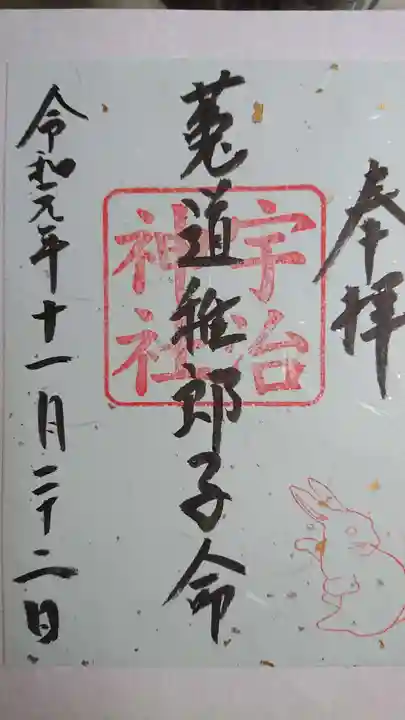 奉拝
宇治
神社
菟道稚郎子命
令和元年十一月二十二日